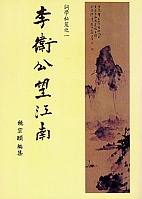 詞學秘笈之一
李衛公望江南
饒宗頤 編集